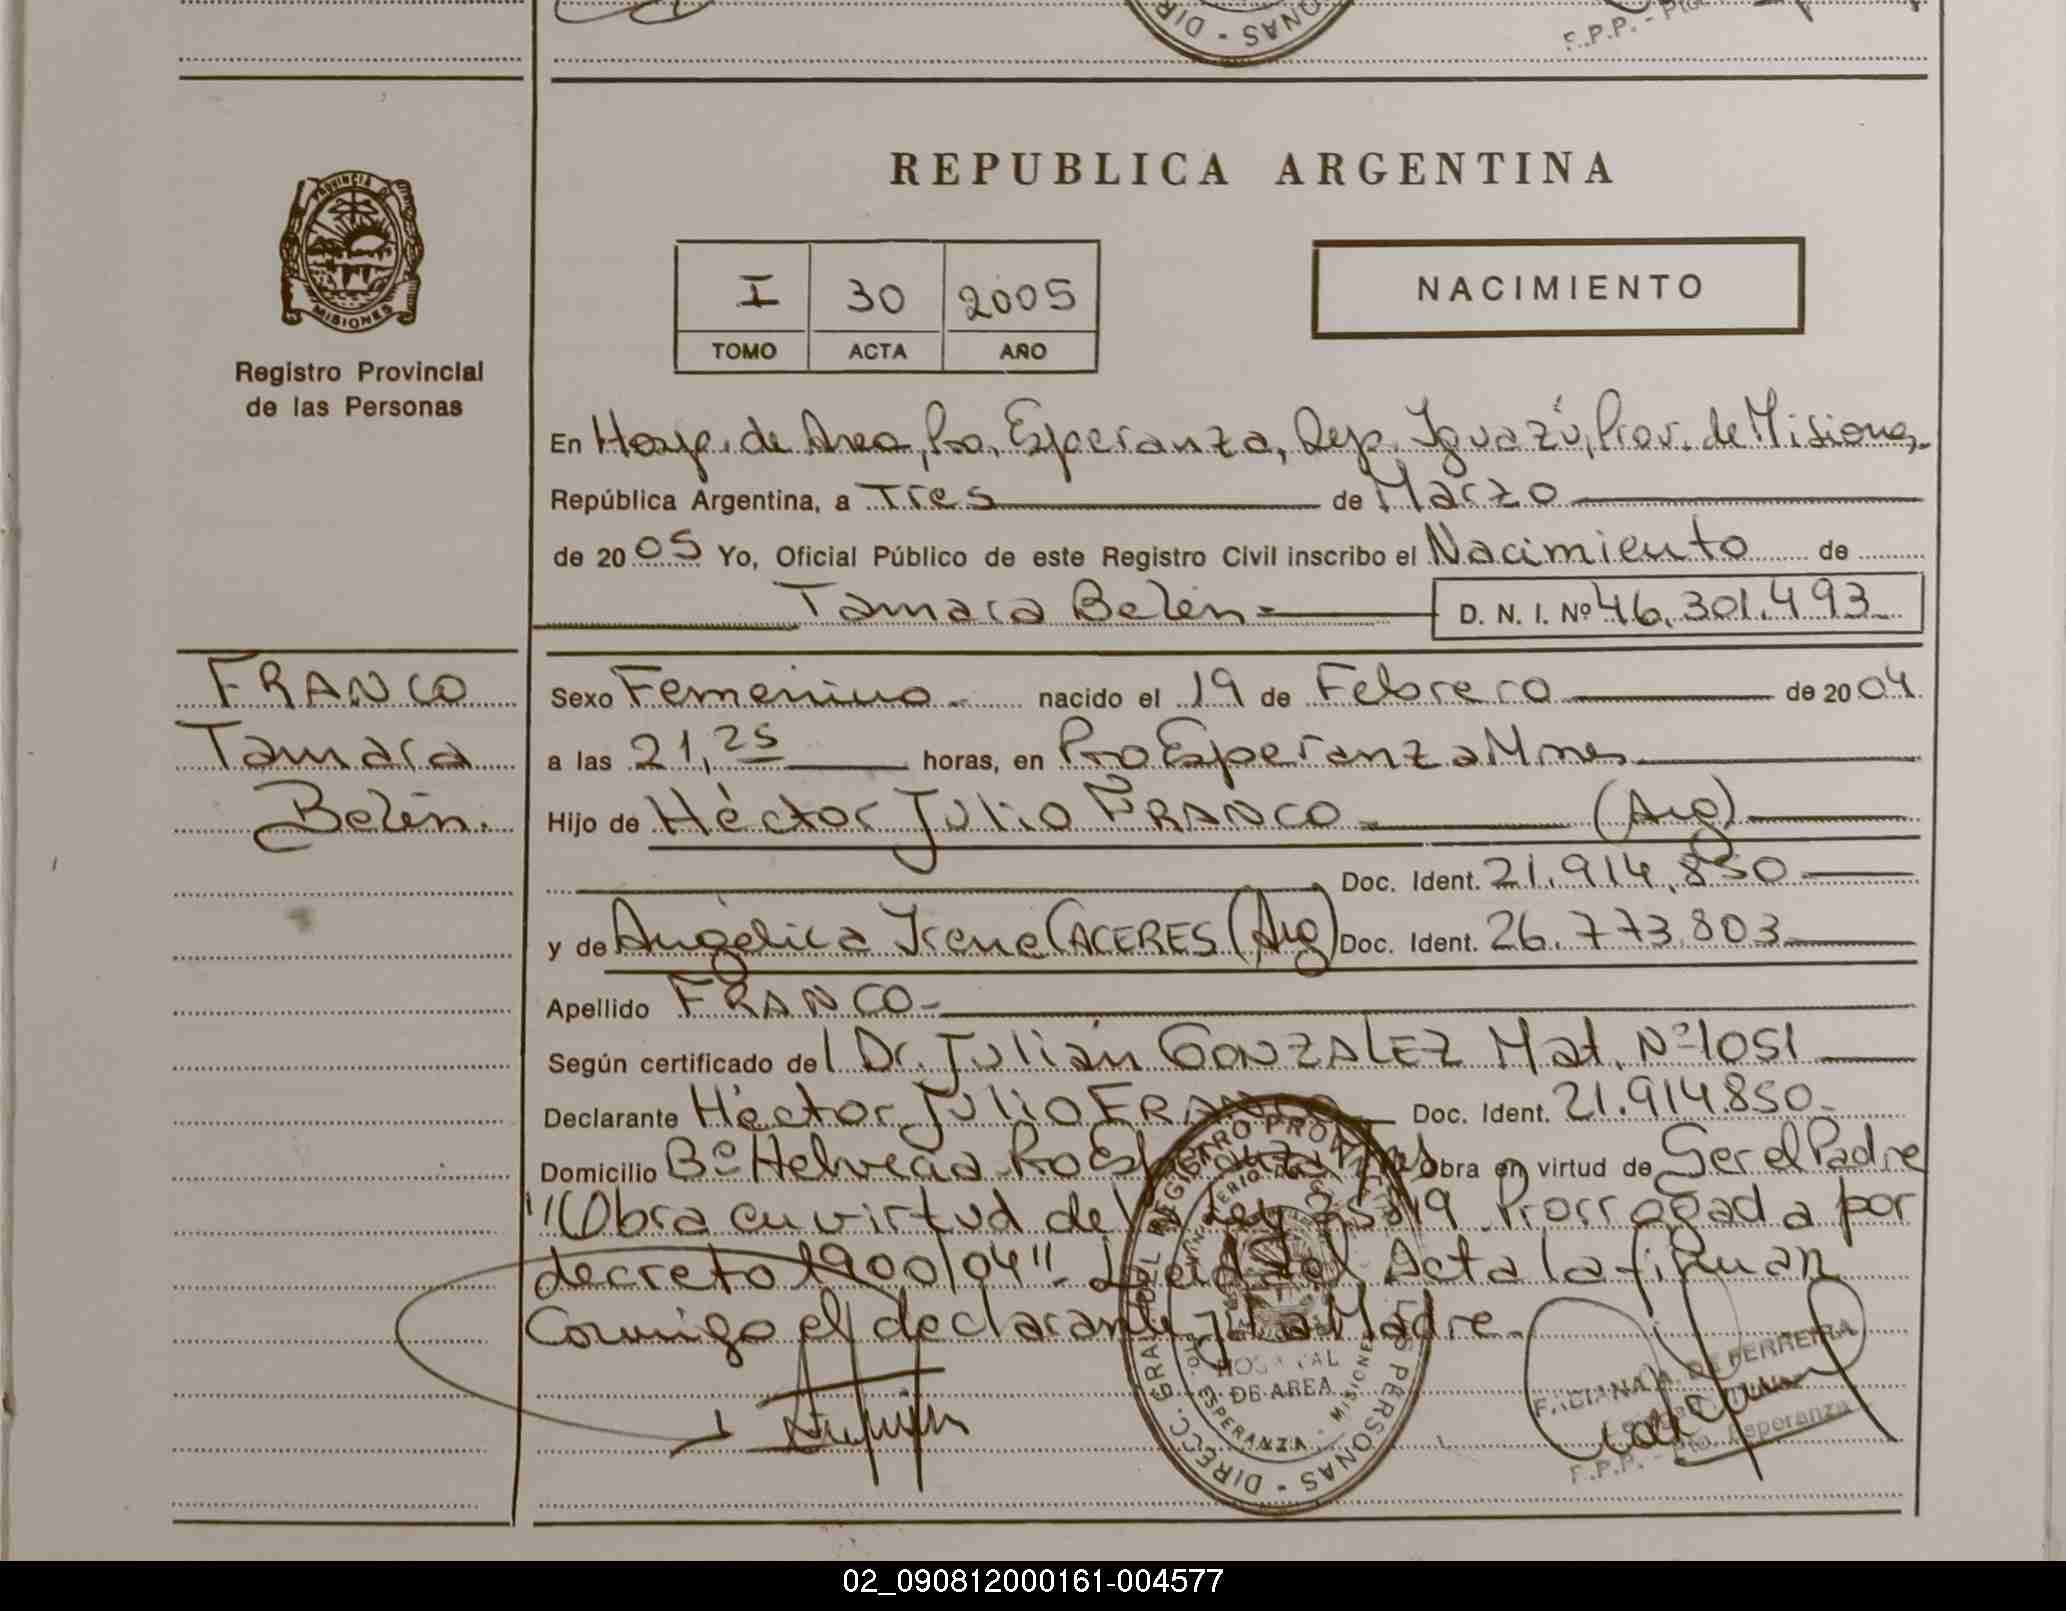 DIR - SONAS
F.P.P. - Pto.
PROVINCIA D
MISIONES
Registro Provincial
de las Personas
REPUBLICA ARGENTINA
I 30 2005
TOMO ACTA AÑO
NACIMIENTO
En Hosp. de Area, Pto. Esperanza, Dep. Iguazú, Prov. de Misiones.
República Argentina, a Tres de Marzo
de 2005 Yo, Oficial Público de este Registro Civil inscribo el Nacimiento de
Tamara Belén= D. N. I. Nº 46.301.493
FRANCO
Tamara
Belén.
Sexo Femenino.- nacido el 19 de Febrero de 2004
a las 21,25 horas, en Pto Esperanza Mnes
Hijo de Héctor Julio FRANCO (Arg)
Doc. Ident. 21.914.850
y de Angélica Irene CACERES (Arg) Doc. Ident. 26.773.803
Apellido FRANCO-
Según certificado del Dr. Julián GONZALEZ Mat. Nº 1051
Declarante Héctor Julio FRANCO Doc. Ident. 21.914.850-
Domicilio Bº Helvecia Pto Esperanza Mnes Obra en virtud de Ser el Padre
"Obra en virtud de la Ley 25819 Prorrogada por
decreto 1900/04". Leida el Acta la firman
Conmigo el declarante y la Madre.
DIRECC. GRAL. DEL REGISTRO PROV. PERSONAS
HOSPITAL
DE AREA
ESPERANZA - MISIONES
FABIANA A. DE FERREIRA
F.P.P. - Pto. Esperanza
02_090812000161-004577